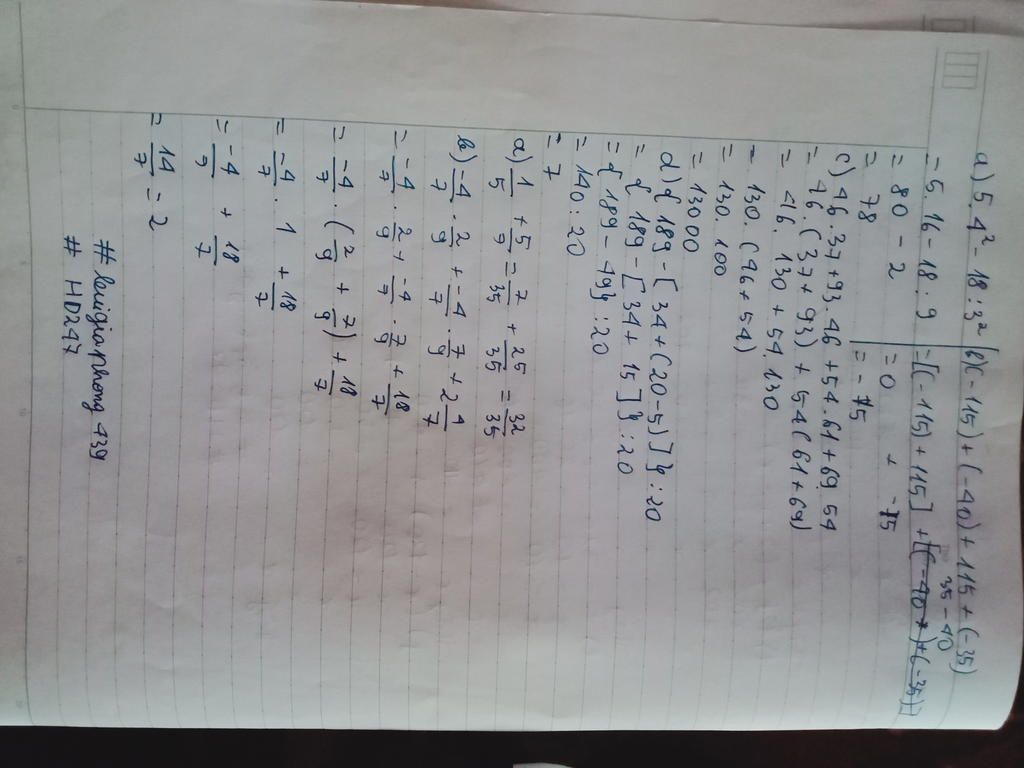 a) 5.4² - 18:3²
= 5.16 - 18:9
= 80 - 2
= 78
b) (-115) + (-40) + 115 + (-35)
= [(-115) + 115] +
35 - 40
= 0 + -75
= -75
c) 46.37 + 93.46 + 54.61 + 69 54
= 46.(37 + 93) + 54(61 + 69)
= 46. 130 + 54.130
= 130. (46 + 54)
= 130.100
= 13000
d) { 189 - [34 + (20-5)]} : 20
= { 189 - [34 + 15]} : 20
= { 189 - 49} : 20
= 140 : 20
= 7
a) 1/5 + 5/7 = 7/35 + 25/35 = 32/35
b) -4/7 . 2/9 + -4/7 . 7/9 + 2 4/7
= -4/7 . 2/9 + -4/7 . 7/9 + 18/7
= -4/7 . (2/9 + 7/9) + 18/7
= -4/7 . 1 + 18/7
= -4/7 + 18/7
= 14/7 = 2
# HD247